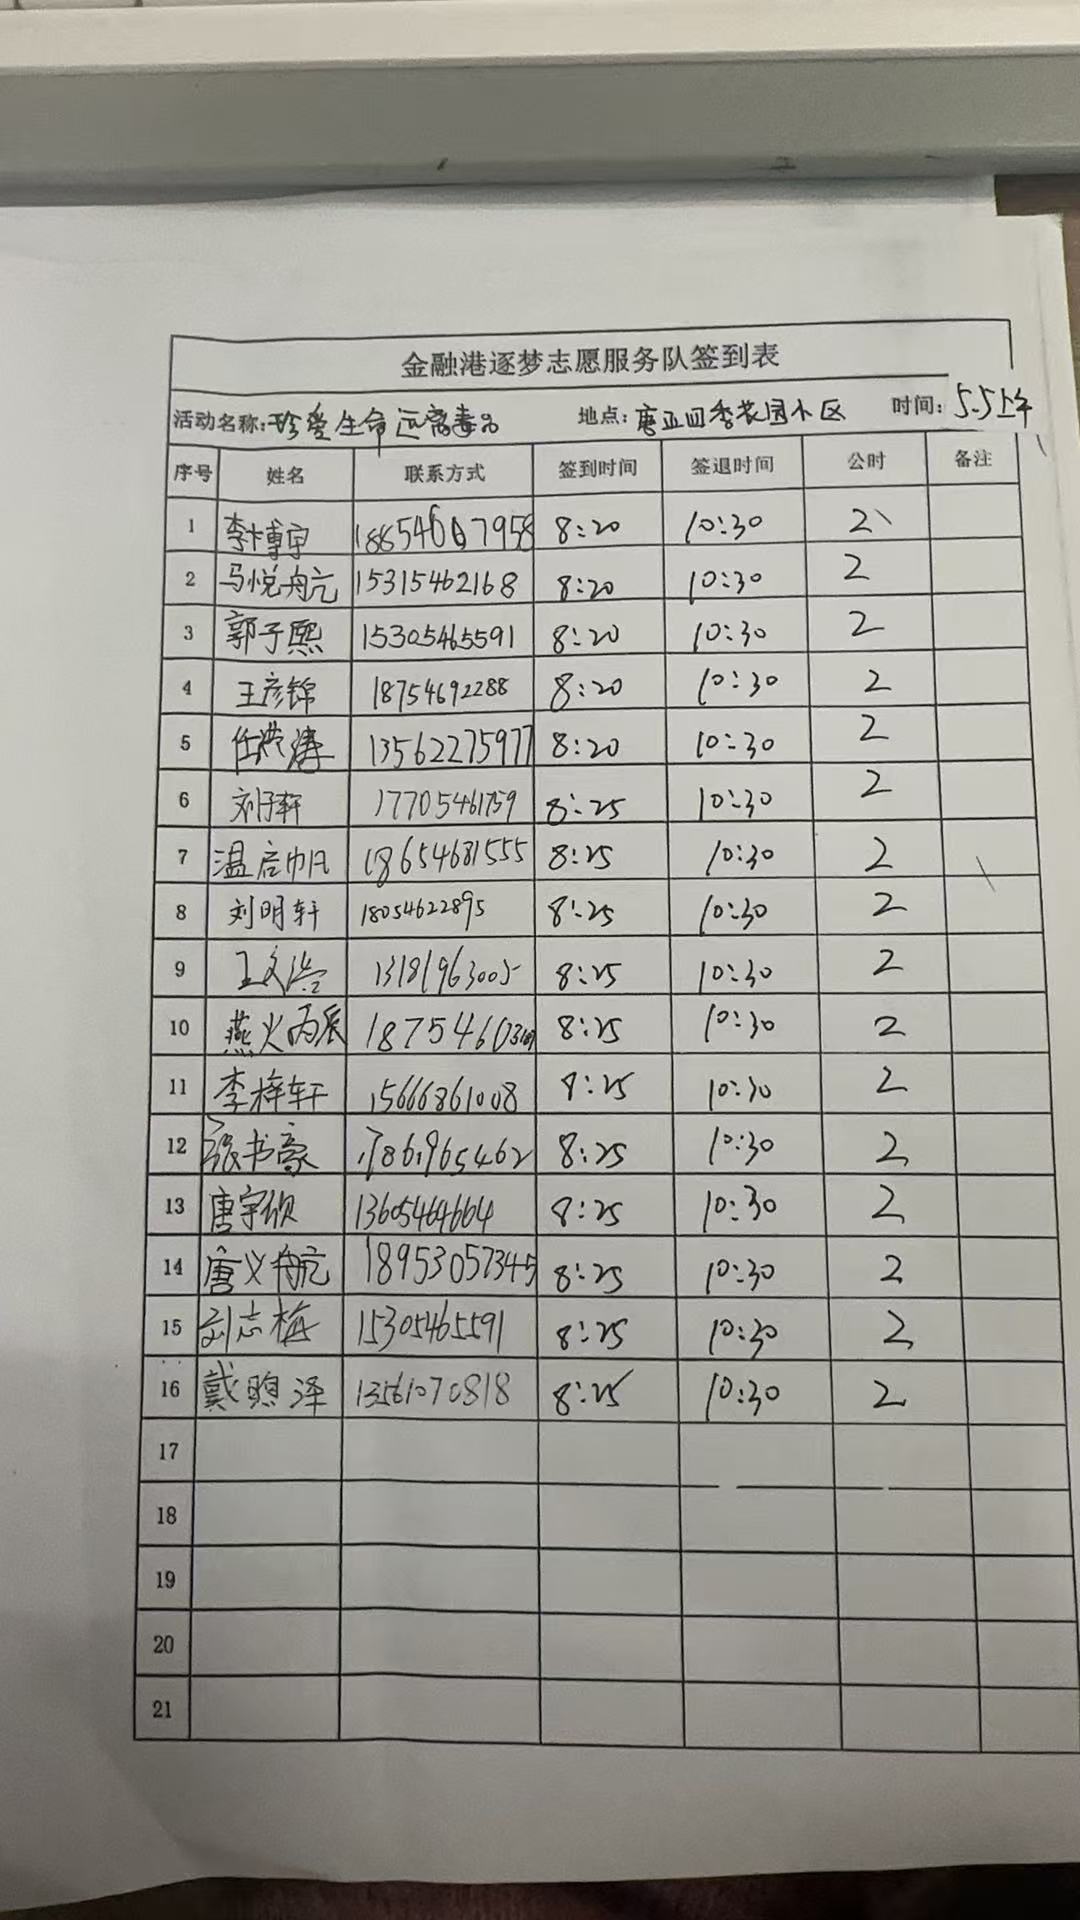 金融港逐梦志愿服务队签到表
活动名称:珍爱生命远离毒品 地点:唐正四季花园小区 时间:5.5上午
序号 姓名 联系方式 签到时间 签退时间 公时 备注
1 李博宇 8:20 10:30 2
2 马悦航 15315462168 8:20 10:30 2
3 郭子熙 15305465591 8:20 10:30 2
4 王彦锦 18754692288 8:20 10:30 2
5 任洪涛 13562275977 8:20 10:30 2
6 刘子轩 17705461759 8:25 10:30 2
7 温启帆 18654681555 8:25 10:30 2
8 刘明轩 18054622895 8:25 10:30 2
9 王文浩 13181963005 8:25 10:30 2
10 燕炳辰 8:25 10:30 2
11 李梓轩 15666861008 8:25 10:30 2
12 张书豪 17861965462 8:25 10:30 2
13 唐宇欣 13605464664 8:25 10:30 2
14 唐义航 18953057345 8:25 10:30 2
15 刘志梅 15305465591 8:25 10:30 2
16 戴煦泽 13561070818 8:25 10:30 2
17
18
19
20
21